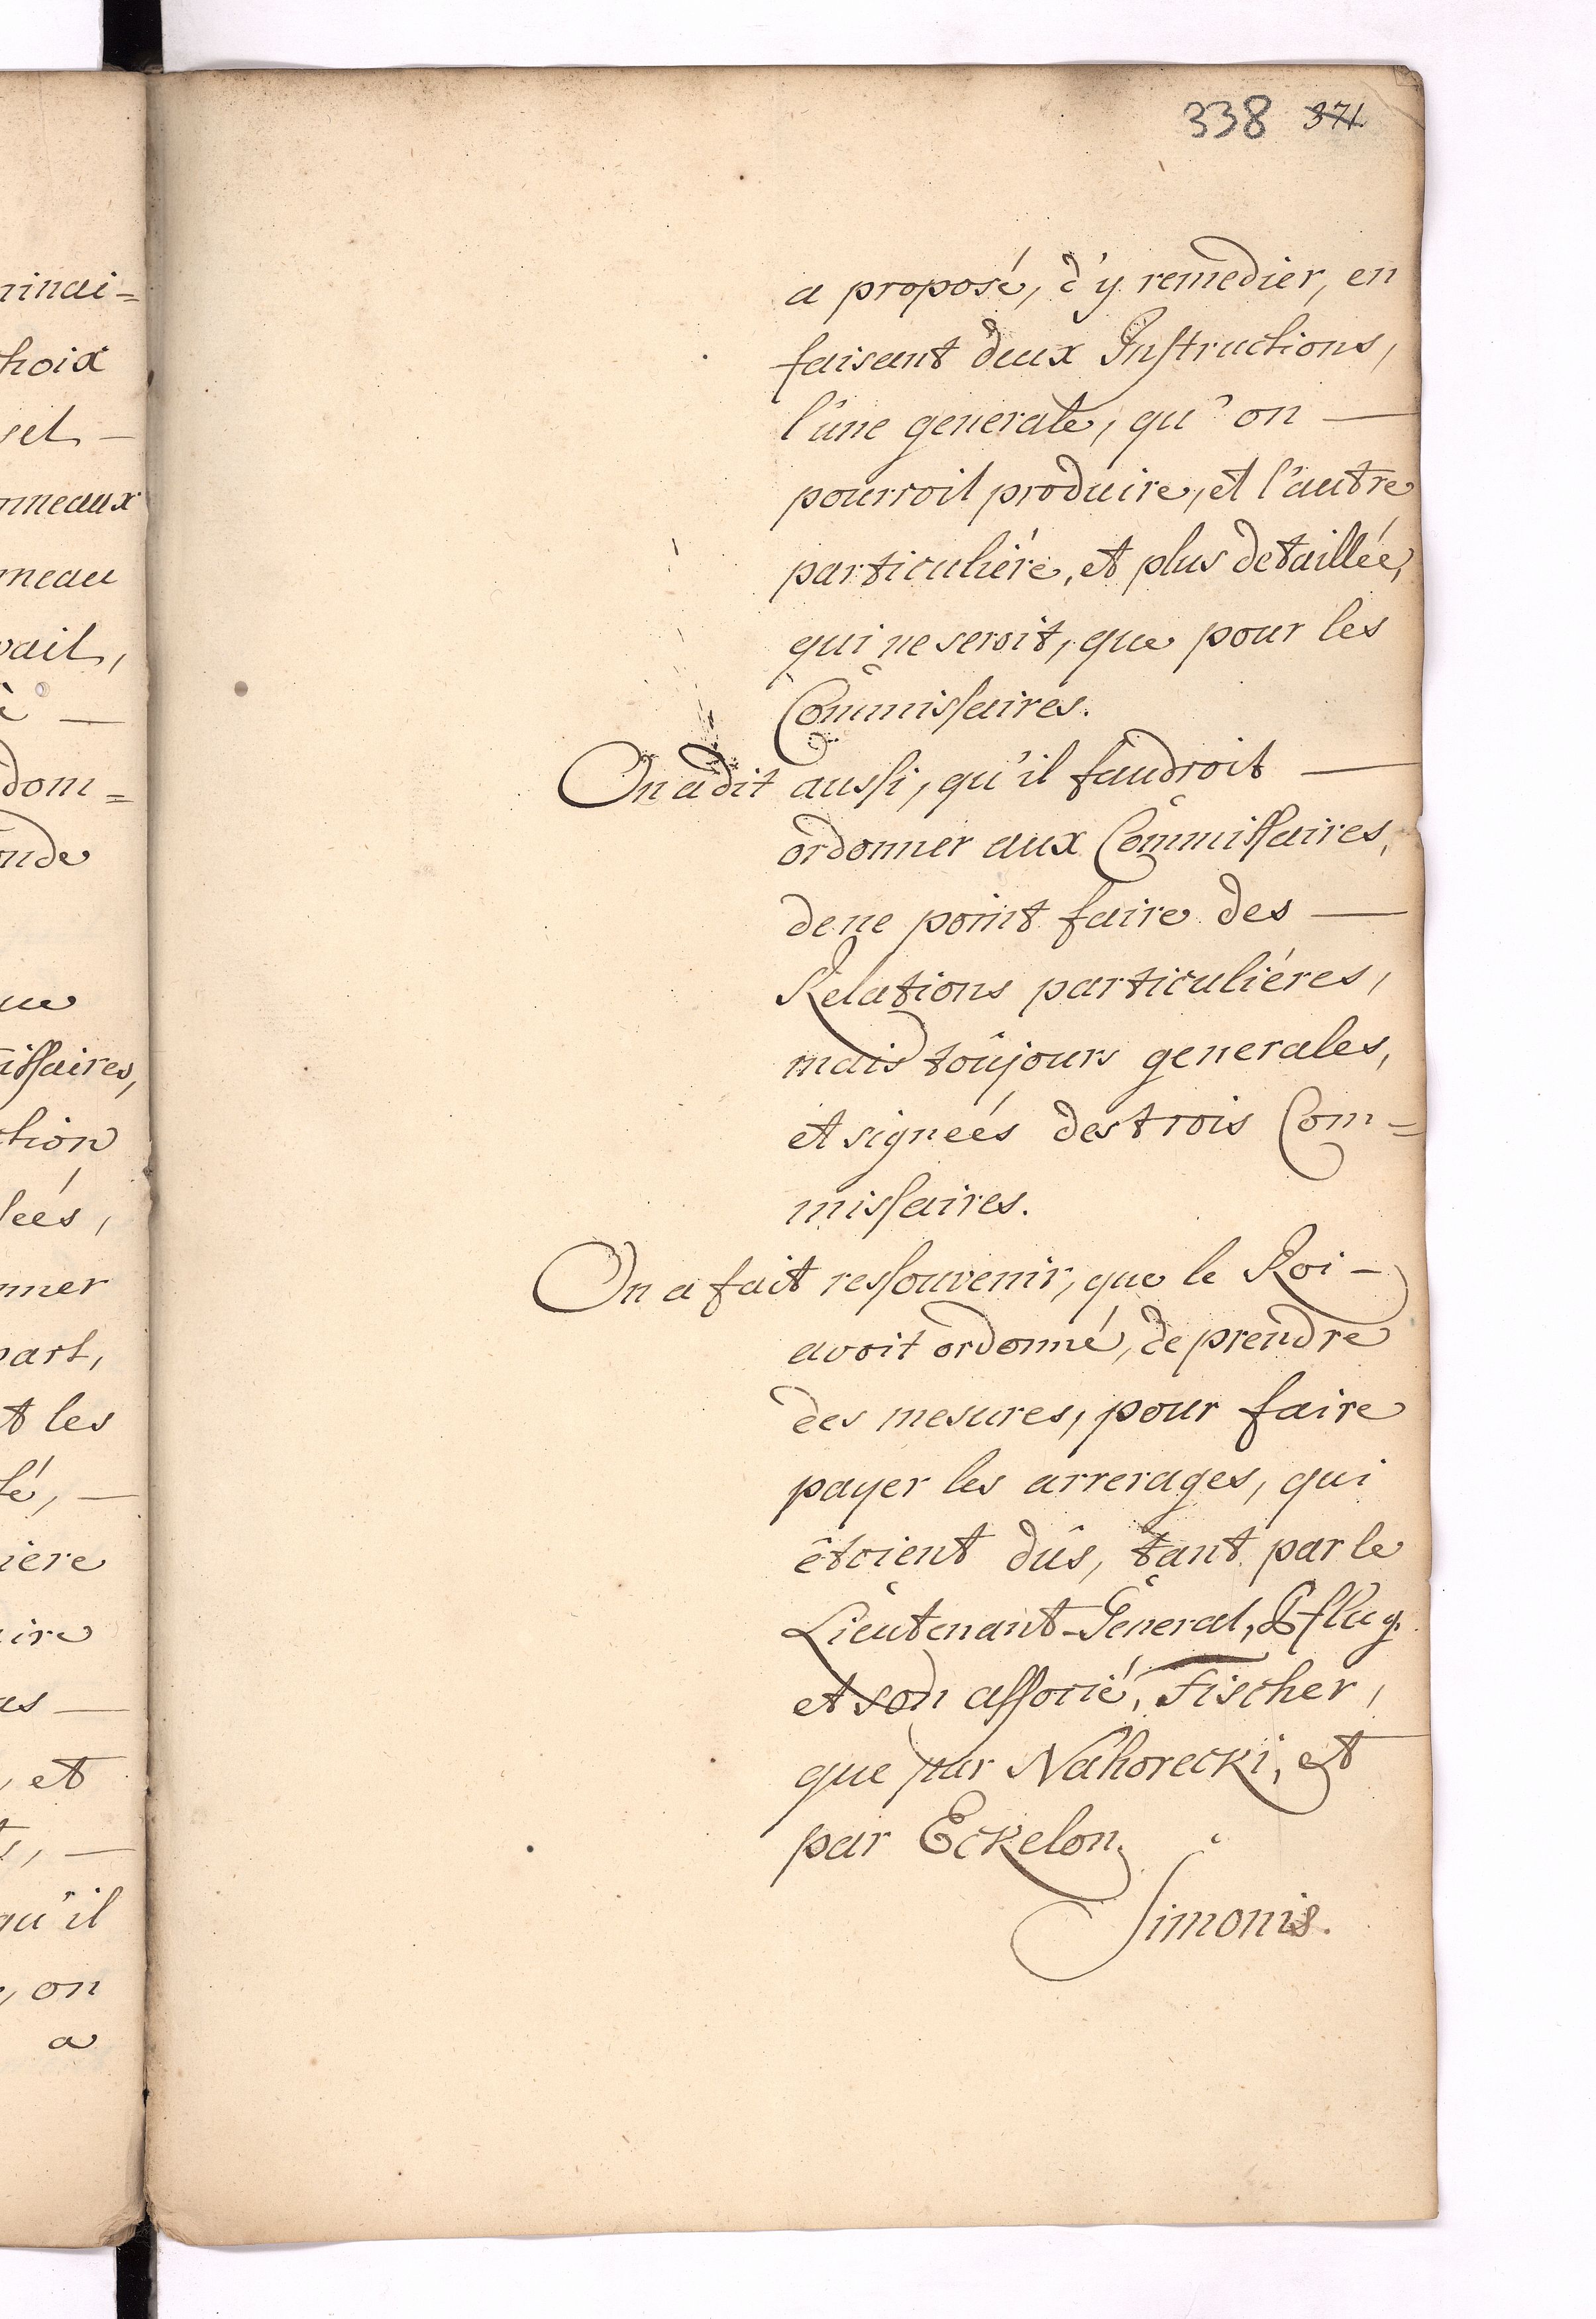 338 371
a proposé, d'y remedier, en
faisant deux Instructions,
l'une generale, qu'on —
pourroit produire, et l'autre
particuliére, et plus detaillée,
qui ne seroit, que pour les
Commissaires.
On a dit aussi, qu'il faudroit —
ordonner aux Commissaires,
de ne point faire des —
Relations particuliéres,
mais toûjours generales,
et signeés des trois Com=
missaires.
On a fait ressouvenir, que le Roi -
avoit ordonné, de prendre
des mesures, pour faire
payer les arrerages, qui
êtoient dûs, tant par le
Lieutenant-General, Pflug,
et son associé, Fischer,
que par Nahorecki, et
par Eckelon.
Simonis.
ninai=
hoix
sel —
nneaux
neau
vail,
è —
dom=
onde
ue
issaires,
ction
leés,
nner
part,
t les
lé, —
iere
ire
as —
, et
s, —
qu'il
, on
a